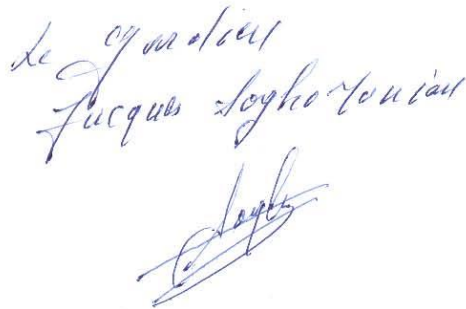 Le gardien
Jacques Soghomonian